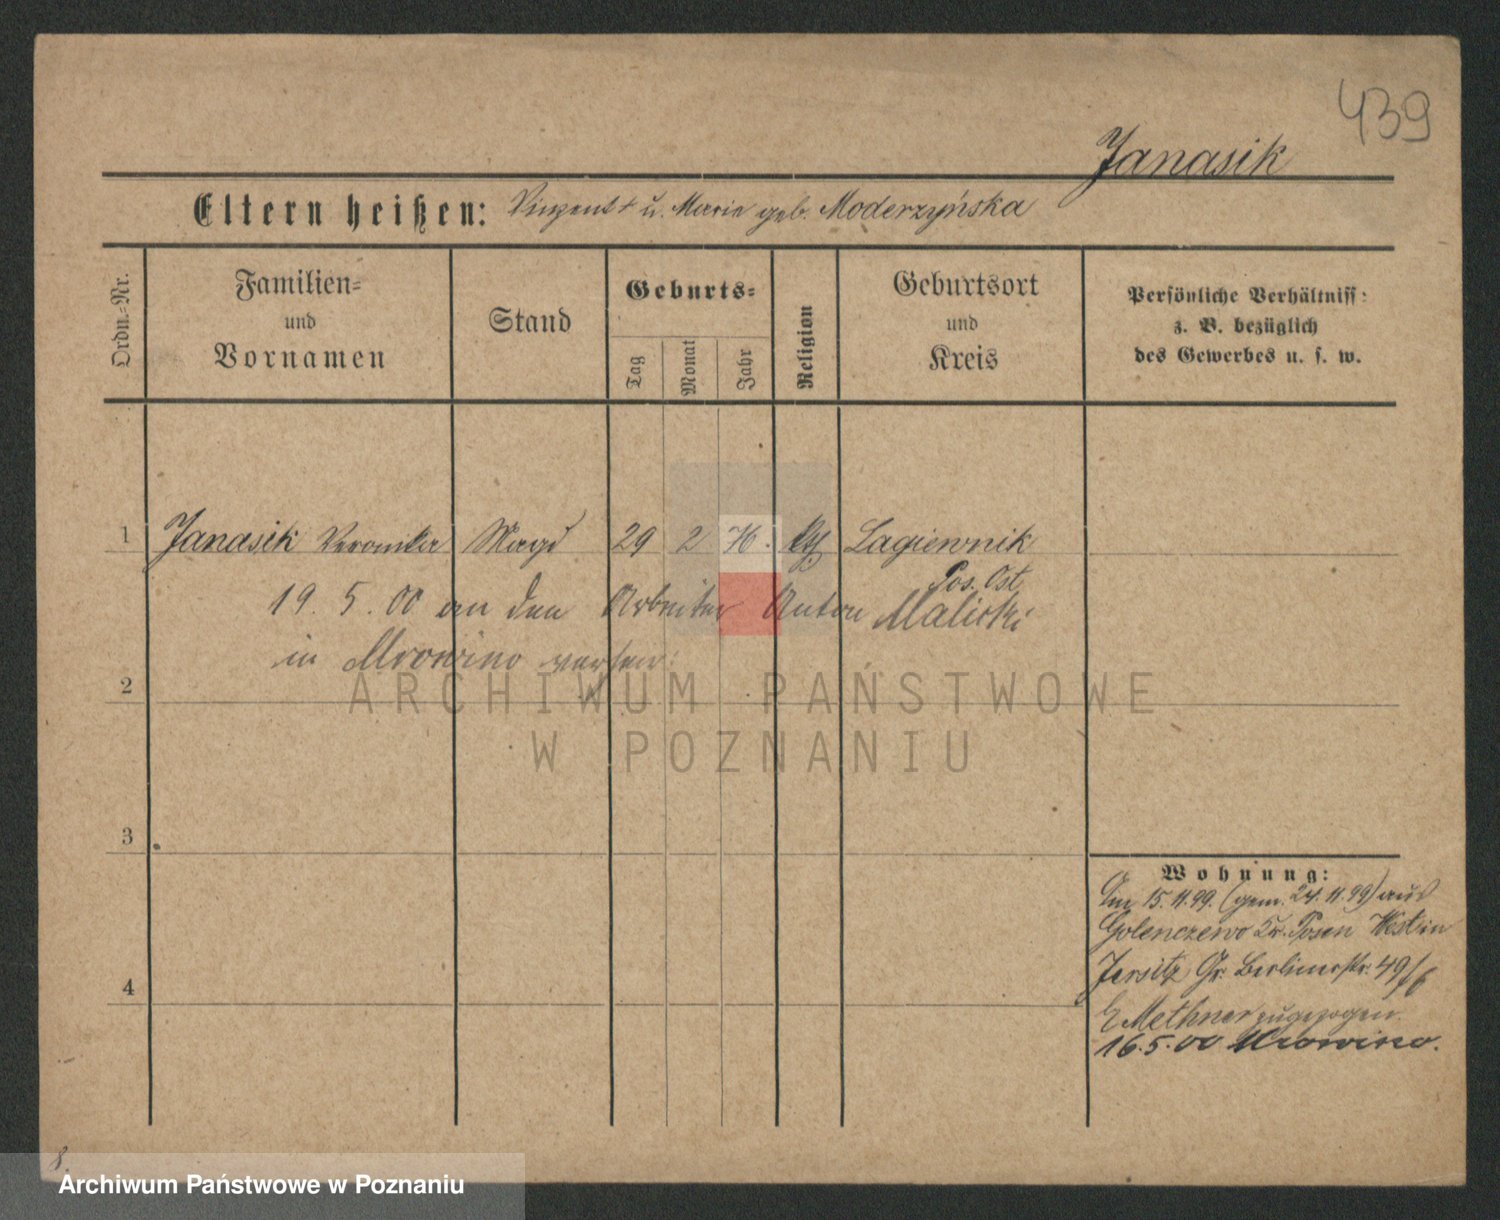 439
Janasik
Eltern heißen: Vinzent + u. Marie geb. Moderzyńska
Ordn.-Nr.
Familien-
und
Vornamen
Stand
Geburts-
Tag
Monat
Jahr
Religion
Geburtsort
und
Kreis
Persönliche Verhältniss:
z. B. bezüglich
des Gewerbes u. s. w.
1 Janasik Veronika Magd 29 2 76. Lagiewnik
Pos. Ost
19. 5. 00 an den Arbeiter Anton Malicki
in Mrowino verh
2
3
4
Wohnung:
Am 15.11.99. (gem. 24.11.99) aus
Golenczewo Kr. Posen West in
Jersitz Gr. Berlinerstr. 49/6
Methner zugezogen.
16.5.00 Mrowino.
8.
ARCHIWUM PAŃSTWOWE
W POZNANIU
Archiwum Państwowe w Poznaniu